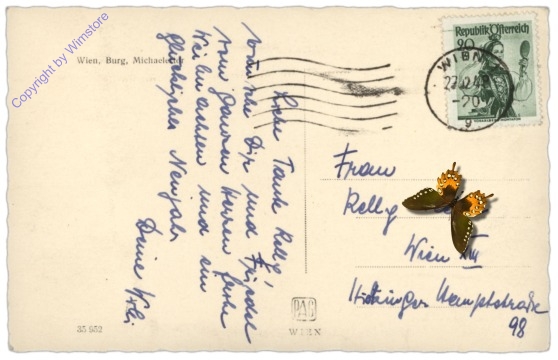 Wien, Burg, Michaelertor
Copyright by Wimstore
Republik Österreich
20
WIEN
9
Liebe Tante Kelly!
wünsche Dir und
vom ganzen Herzen frohe
Weihnachten und ein
glückliches Neujahr
Deine
Frau
Kelly
Wien XIII
Hietzinger Hauptstraße
98
PAG
WIEN
35 952